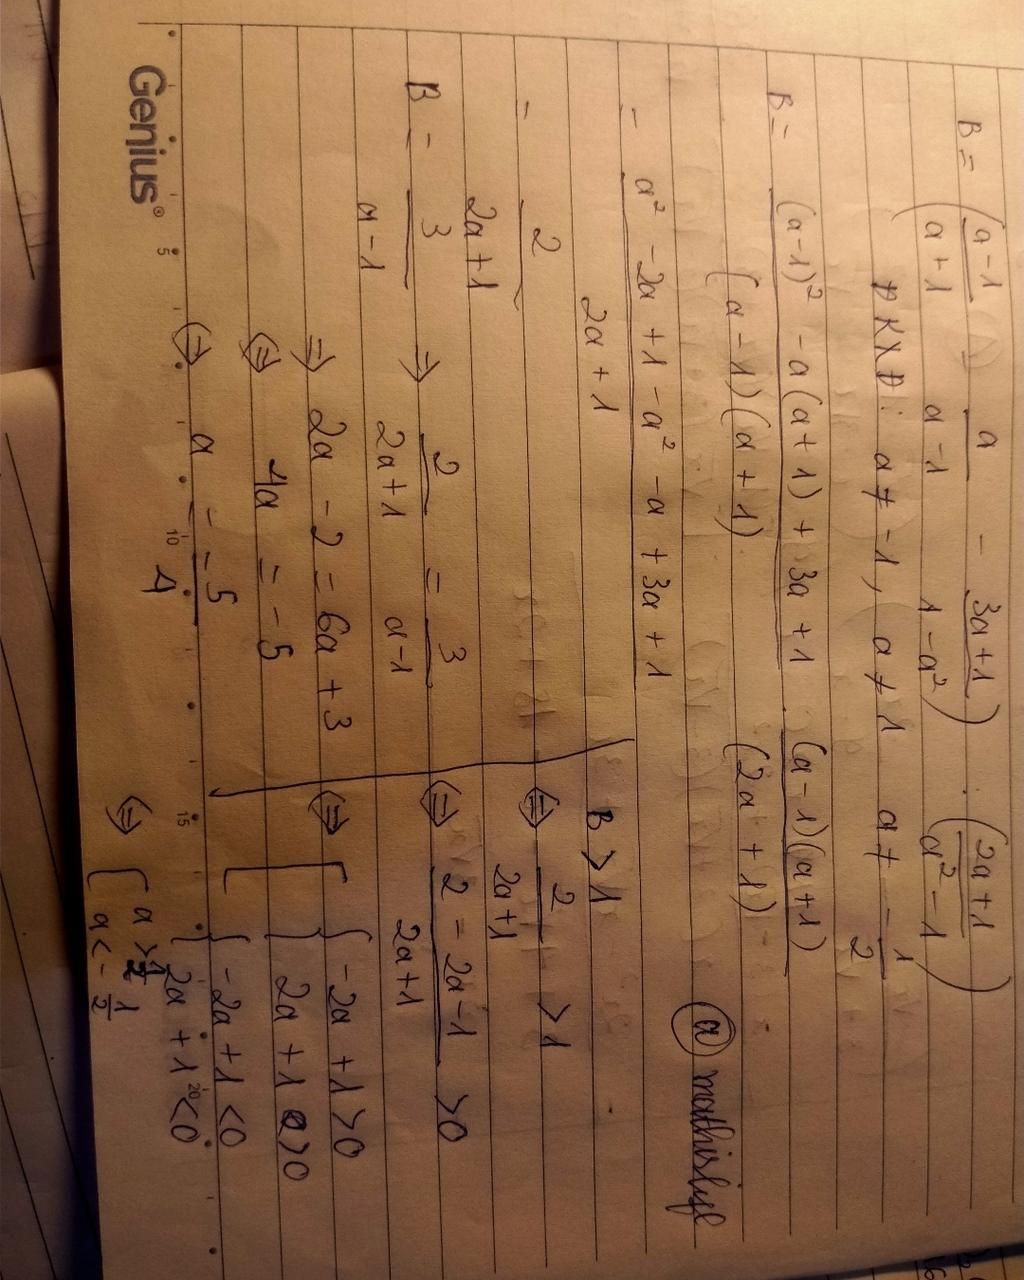 B = (a-1/a+1 - a/a-1 - 3a+1/1-a²) : (2a+1/a²-1)
ĐKXĐ: a ≠ -1, a ≠ 1 a ≠ -1/2
B = (a-1)² - a(a+1) + 3a + 1/(a-1)(a+1) . (a-1)(a+1)/(2a+1)
@mathislife
= a² - 2a + 1 - a² - a + 3a + 1/2a + 1
= 2/2a+1
B = 3/a-1 => 2/2a+1 = 3/a-1
=> 2a - 2 = 6a + 3
<=> 4a = -5
<=> a = -5/4
B > 1
<=> 2/2a+1 > 1
<=> 2 - 2a - 1/2a+1 > 0
<=> [ { -2a + 1 > 0
2a + 1 > 0
{ -2a + 1 < 0
2a + 1 < 0
<=> { a > 1/2
a < -1/2
Genius®
5 10 15 20